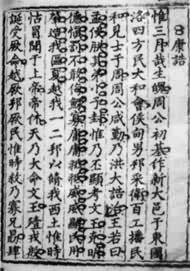 康誥
惟三月哉生魄周公初基作新大邑于東國
洛四方民大和會侯甸男邦采衛百工播民
和見士于周周公咸勤乃洪大誥治王若曰
孟侯朕其弟小子封惟乃丕顯考文王克明
德慎罰不敢侮鰥寡庸庸祗祗威威顯民用
肇造我區夏越我一二邦以修我西土惟時
怙冒聞于上帝帝休天乃大命文王殪戎殷
誕受厥命越厥邦厥民惟時敘乃寡兄勖肆